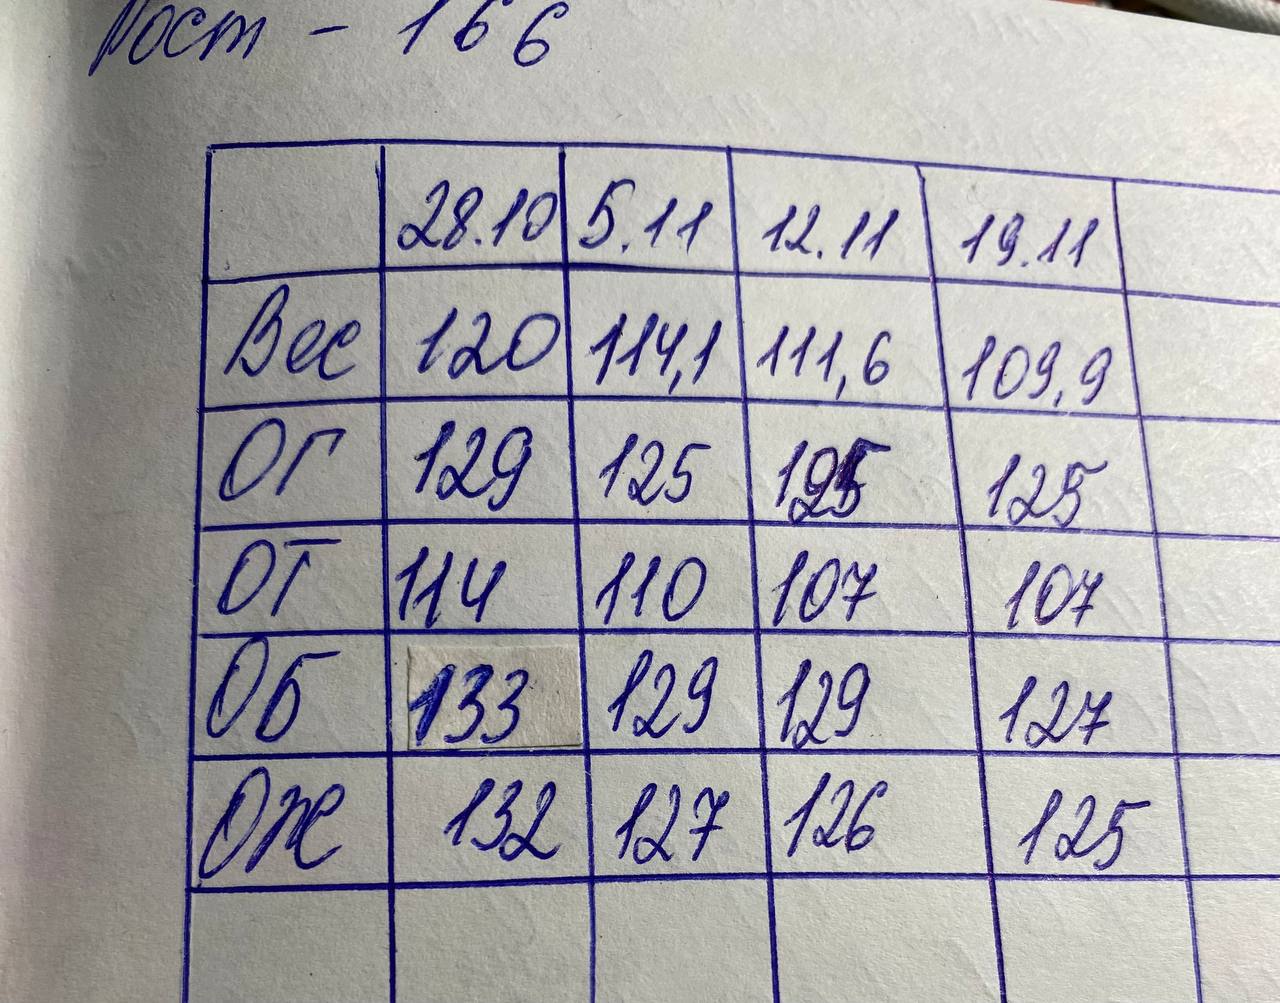 Рост - 166
28.10 5.11 12.11 19.11
Вес 120 114,1 111,6 109,9
ОГ 129 125 125 125
ОТ 114 110 107 107
ОБ 133 129 129 127
ОЖ 132 127 126 125